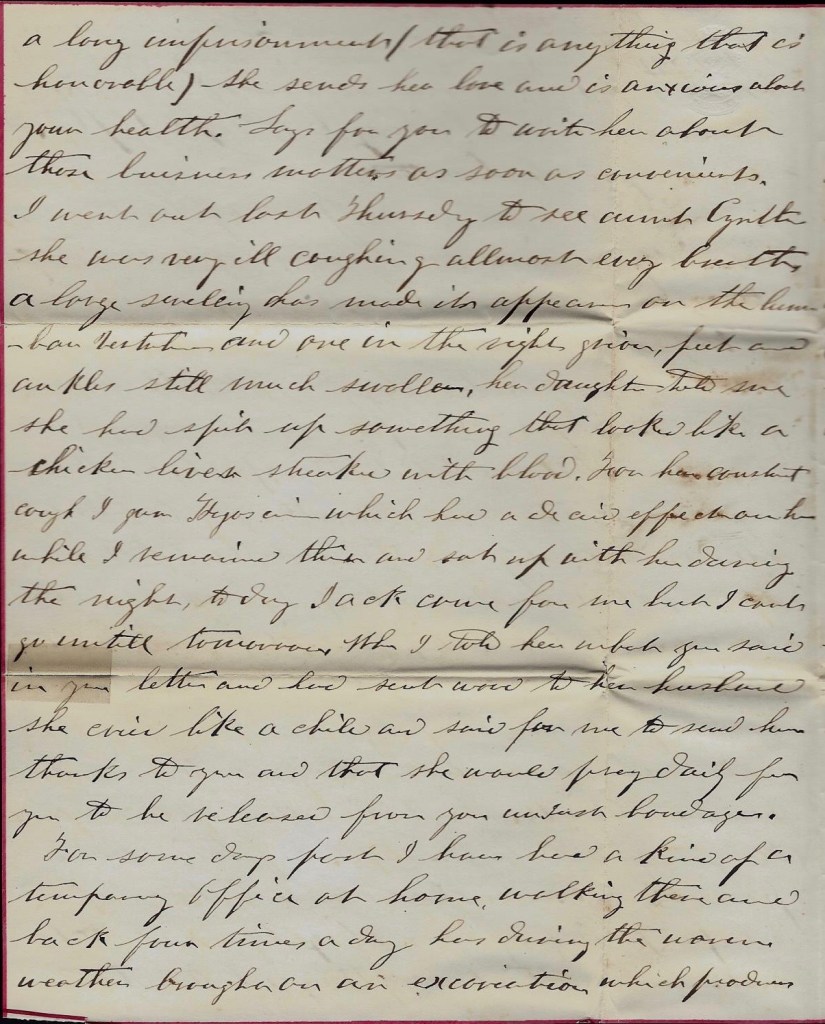 a long imprisonment (that is anything that is
honorable) she sends her love and is anxious about
your health. Says for you to write her about
those buisness matters as soon as convenients.
I went out last Thursday to see aunt Cynthia
she was very ill coughing allmost evey breath,
a large swelling has made its appearance on the lum
-bar and one in the right groin, feet and
ankles still much swollen, her daughter told me
she had spit up something that looked like a
chicken liver streaked with blood. For her constant
cough I gave Hyoscin which had a decid effect on her
while I remained there and sat up with her during
the night, to day Jack come for me but I could
go untill tomorrow, When I told her what you said
in your letter and had sent word to her husband
she cried like a child and said for me to send her
thanks to you and that she would pray daily for
you to be released from you unjust bondage.
For some days past I have had a kind of a
tempary office at home, walking there and
back four times a day has during the warm
weather brought on an excoriation which produces